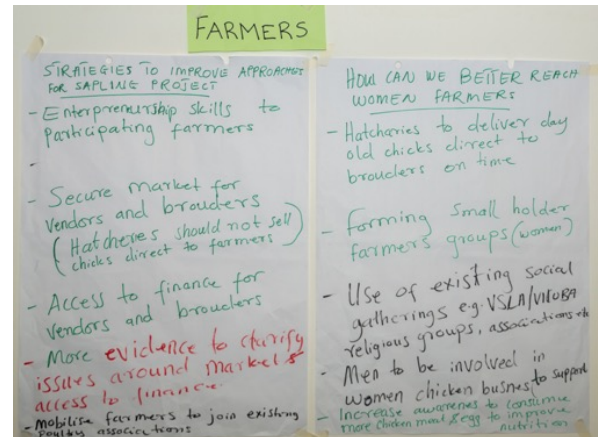 FARMERS
STRATEGIES TO IMPROVE APPROACHES
FOR SAPLING PROJECT
- Enterprenurship skills to
participating farmers
-
- Secure market for
vendors and brouders
(Hatcheries should not sell
chicks direct to farmers)
- Access to finance for
vendors and brouders
- More evidence to clarify
issues around markets
access to finance.
- Mobilise farmers to join existing
poultry associations
HOW CAN WE BETTER REACH
WOMEN FARMERS
- Hatcharies to deliver day
old chicks direct to
brouders on time
- Forming small holder
farmers groups (women)
- Use of existing social
gatherings e.g. VSLA/VICOBA
religious groups, associations etc
- Men to be involved in
women chicken busnes to support
- Increase awarenes to consume
more chicken meat & egg to improve
nutrition